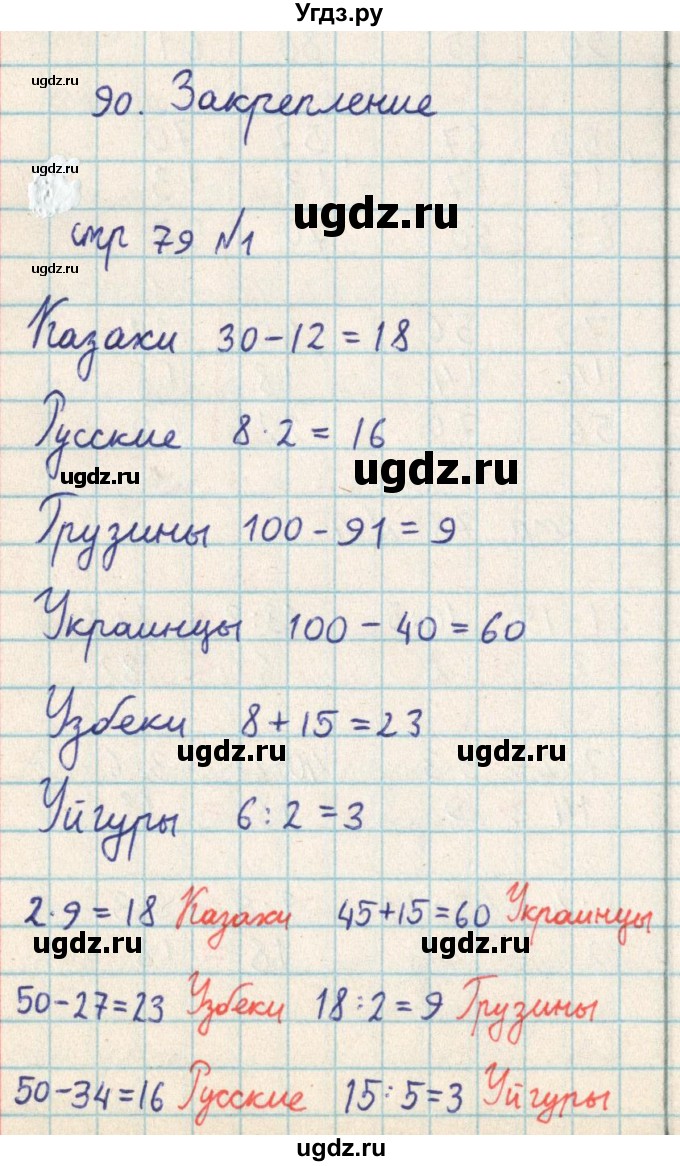 Угдз.ру
ugdz.ru
90. Закрепление
ugdz.ru
ugdz.ru
стр 79 №1
ugdz.ru
Казахи 30-12=18
Русские 8·2=16
ugdz.ru ugdz.ru
Грузины 100-91=9
Украинцы 100-40=60
Узбеки 8+15=23
ugdz.ru ugdz.ru
Уйгуры 6:2=3
2·9=18 Казахи 45+15=60 Украинцы
ugdz.ru ugdz.ru
50-27=23 Узбеки 18:2=9 Грузины
50-34=16 Русские 15:5=3 Уйгуры
ugdz.ru